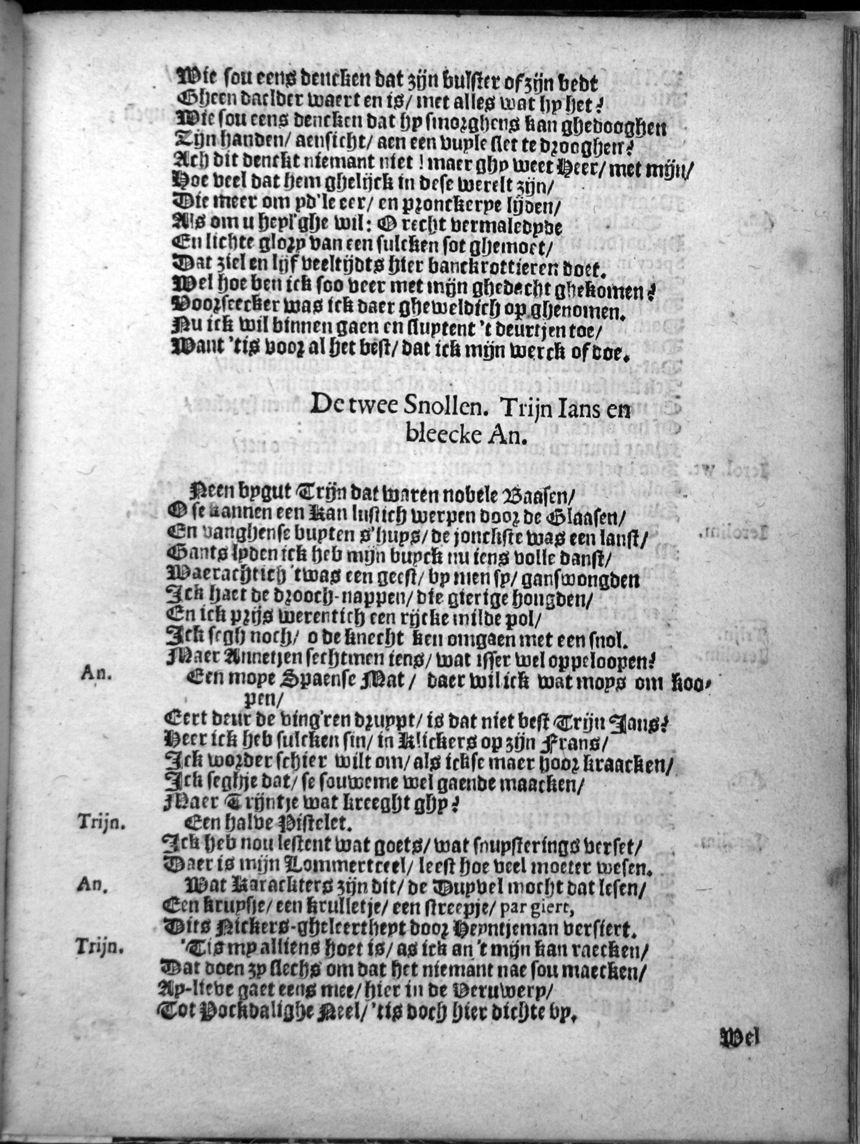 Wie sou eens dencken dat zijn bulster of zijn bedt
Gheen daelder waert en is/ met alles wat hy het?
Wie sou eens dencken dat hy smorghens kan ghedooghen
Tijn handen/ aensicht/ aen een vuyle slet te drooghen?
Ach dit denckt niemant niet! maer ghy weet Heer/ met mijn/
Hoe veel dat hem ghelijck in dese werelt zijn/
Die meer om yd'le eer/ en pronckerye lijden/
Als om u heyl'ghe wil: O recht vermaledyde
En lichte glory van een sulcken sot ghemoet/
Dat ziel en lijf veeltijdts hier banckrottieren doet.
Wel hoe ben ick soo veer met mijn ghedacht ghekomen?
Voorseecker was ick daer gheweldich op ghenomen.
Nu ick wil binnen gaen en sluyten 't deurtjen toe/
Want 'tis voor al het best/ dat ick mijn werck of doe.
De twee Snollen. Trijn Ians en
bleecke An.
Neen bygut Trijn dat waren nobele Baasen/
O se kannen een Kan lustich werpen door de Glaasen/
En vanghense buyten s'huys/ de jonckste was een lanst/
Gants lyden ick heb mijn buyck nu iens volle danst/
Waerachtich 'twas een geest/ by men sy/ ganswongden
Ick haet de drooch-nappen/ die gierige hongden/
En ick prijs werentich een rijcke milde pol/
Ick segh noch/ o de knecht ken omgaen met een snol.
Maer Annetjen sechtmen iens/ wat isser wel oppeloopen?
An. Een moye Spaense Mat/ daer wil ick wat moys om koo-
pen/
Eert deur de ving'ren druypt/ is dat niet best Trijn Jans?
Heer ick heb sulcken sin/ in Klickers op zijn Frans/
Ick worder schier wilt om/ als ickse maer hoor kraacken/
Ick seghje dat/ se souweme wel gaende maacken/
Maer Trijntje wat kreeght ghy?
Trijn. Een halve Pistelet.
Ick heb nou lestent wat goets/ wat snupsterings verset/
Daer is mijn Lommertceel/ leest hoe veel moeter wesen.
An. Wat Karackters zijn dit/ de Duyvel mocht dat lesen/
Een kruysje/ een krulletje/ een streepje/ par giert,
Dits Nickers-gheleertheyt door Heyntjeman versiert.
Trijn. 'Tis my alliens hoet is/ as ick an 't mijn kan raecken/
Dat doen zy slechs om dat het niemant nae sou maecken/
Ay-lieve gaet eens mee/ hier in de Veruwery/
Tot Pockdalighe Neel/ 'tis doch hier dichte by.
Wel